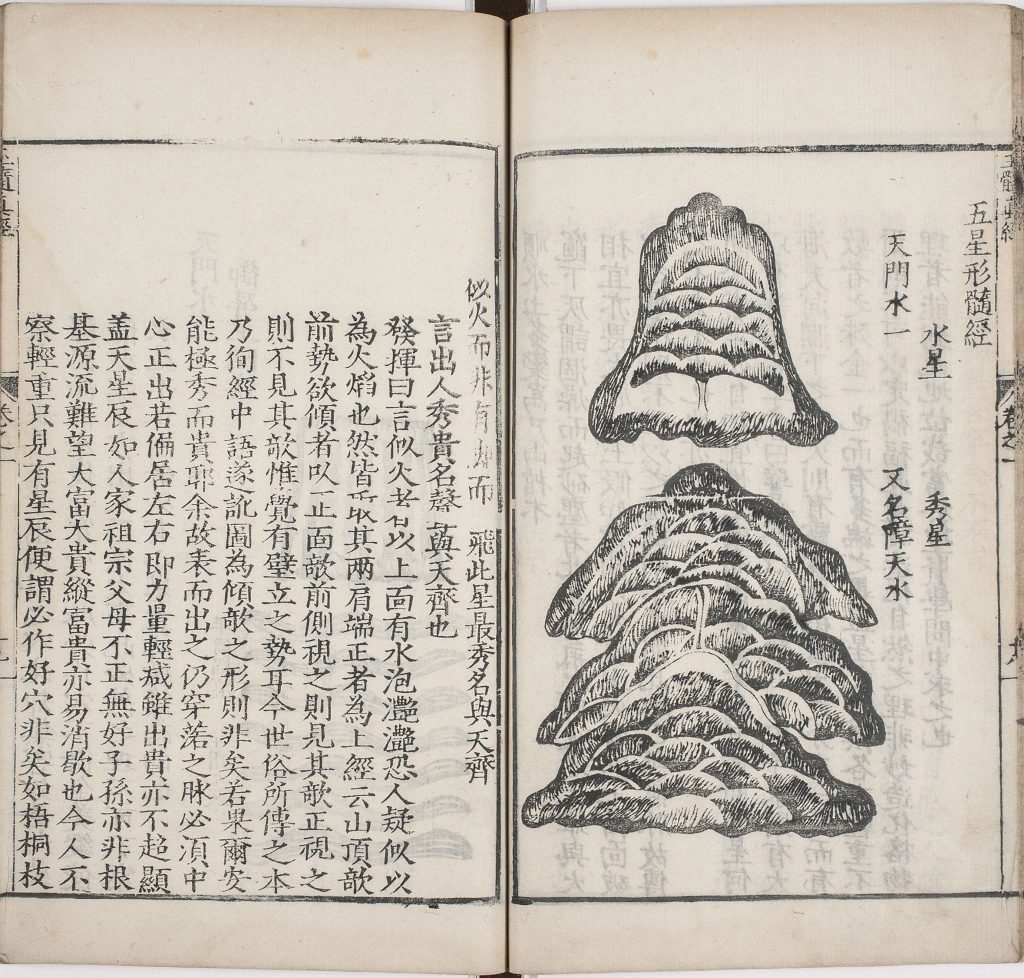 玉髓真經
卷之一
五星形髓經
水星
秀星
天門水一
又名障天水
似火而非有而飛此星最秀名與天齊
言出人秀貴名聲與天齊也
發揮曰言似火者以上面有水泡灧灧恐人疑似以
為火焰也然皆取其兩肩端正者為上經云山頂欹
前勢欲傾者以正面欹前側視之則見其欹正視之
則不見其欹惟覺有壁立之勢耳今世俗所傳之本
乃徇經中語遂訛圖為傾欹之形則非矣若果爾安
能極秀而貴耶余故表而出之仍穿落之脉必須中
心正出若偏居左右即力量輕減雖出貴亦不超顯
盖天星辰如人家祖宗父母不正無好子孫亦非根
基源流難望大富大貴縱富貴亦易消歇也今人不
察輕重只見有星辰便謂必作好穴非矣如梧桐枝
髓真經
卷之一